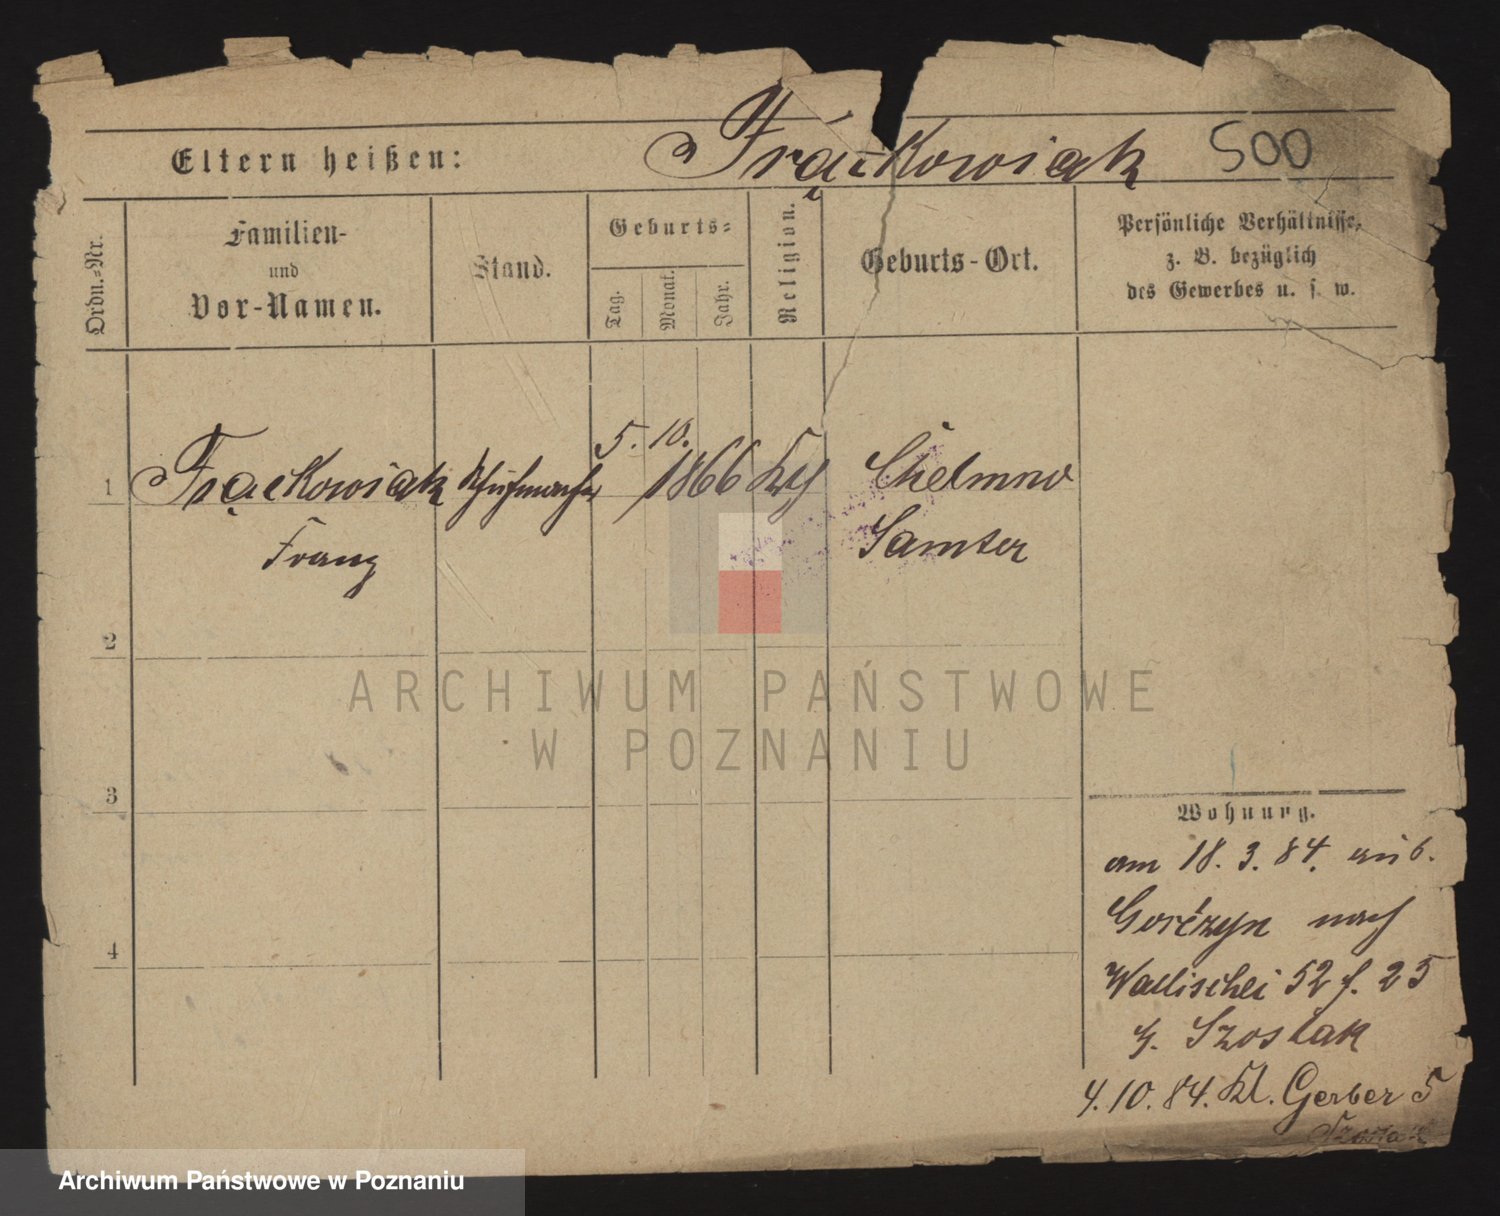 Eltern heißen: Frąckowiak 500
Ordn.-Nr.
Familien-
und
Vor-Namen.
Stand.
Geburts-
Tag.
Monat.
Jahr.
Religion.
Geburts-Ort.
Persönliche Verhältnisse,
z. B. bezüglich
des Gewerbes u. s. w.
5. 10.
1 Frąckowiak Schuhmacher 1866 Chelmno
Franz Samter
2
ARCHIWUM PAŃSTWOWE
W POZNANIU
3
Wohnung.
am 18. 3. 84.
Gorczyn nach
4
Wallischei 52 f. 25
b. Szostak
4. 10. 84. Kl. Gerber 5
Szostak
Archiwum Państwowe w Poznaniu